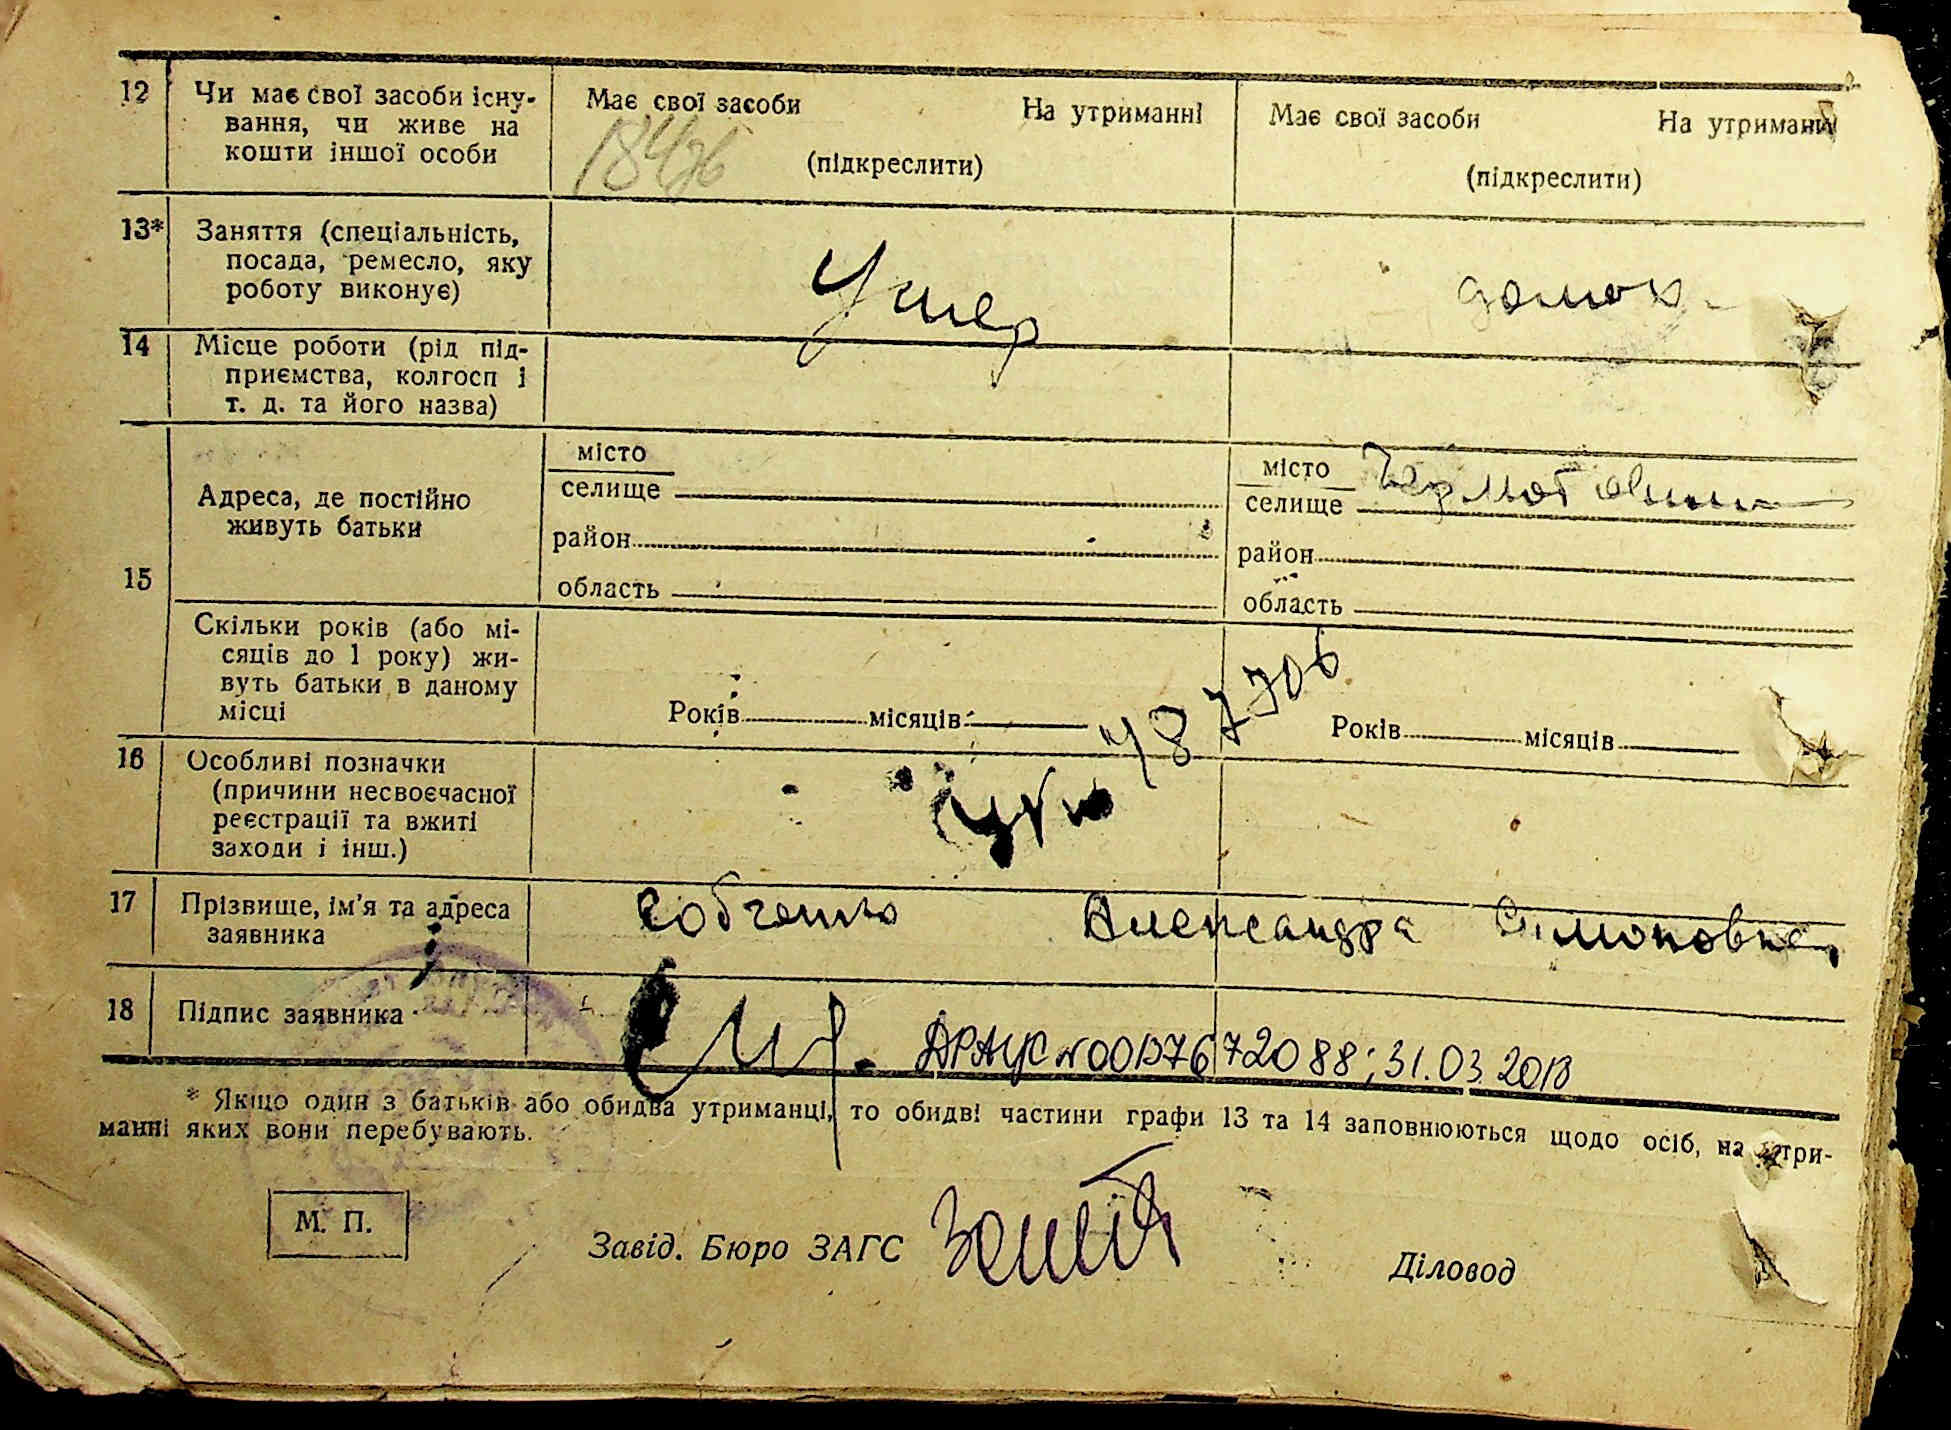 12
Чи має свої засоби існу-
вання, чи живе на
кошти іншої особи
Має свої засоби
На утриманні
(підкреслити)
Має свої засоби
На утриманні
(підкреслити)
13*
Заняття (спеціальність,
посада, ремесло, яку
роботу виконує)
Умер
домох.
14
Місце роботи (рід під-
приємства, колгосп і
т. д. та його назва)
15
Адреса, де постійно
живуть батьки
місто
селище
район
область
місто
селище
район
область
Скільки років (або мі-
сяців до 1 року) жи-
вуть батьки в даному
місці
Років місяців
Років місяців
16
Особливі позначки
(причини несвоєчасної
реєстрації та вжиті
заходи і інш.)
17
Прізвище, ім'я та адреса
заявника
Собченко Александра Симоновна
18
Підпис заявника
ДРАЦС №00137672088; 31.03.2013
* Якщо один з батьків або обидва утриманці, то обидві частини графи 13 та 14 заповнюються щодо осіб, на утри-
манні яких вони перебувають.
М. П.
Завід. Бюро ЗАГС
Діловод